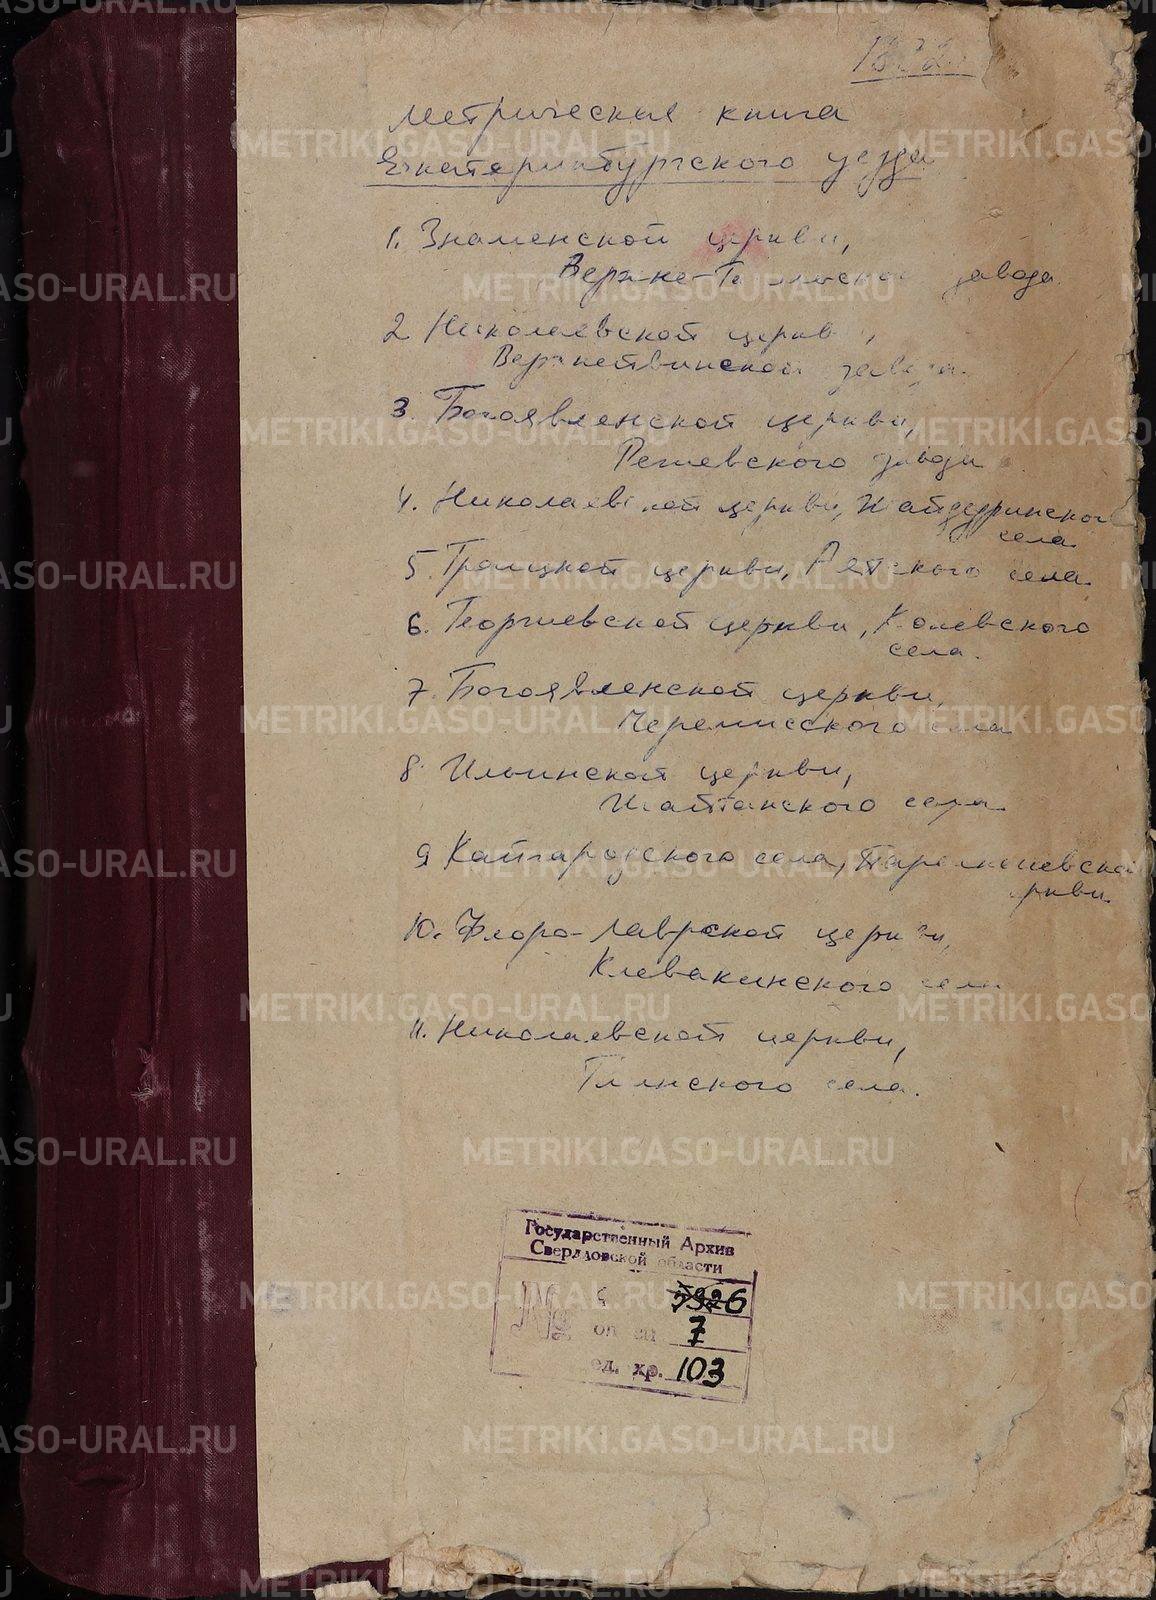 Метрическая книга
Екатеринбургского уезда
1. Знаменской церкви,
Верхне-Тагильского завода
2 Николаевской церкви,
Верхнейвинского завода
3. Богоявленской церкви,
Режевского завода
4. Николаевской церкви, Шайдуринского
села
5. Троицкой церкви, Аятского села
6. Георгиевской церкви,
села.
7. Богоявленской церкви,
Черемисского села
8 Ильинской церкви,
Шайтанского села
9 Кайгородского села,
церкви.
10. Флоро-Лаврской церкви,
Клевакинского села
11. Николаевской церкви,
Глинского села.
Государственный Архив
Свердловской области
7
ед. хр. 103
METRIKI.GASO-URAL.RU